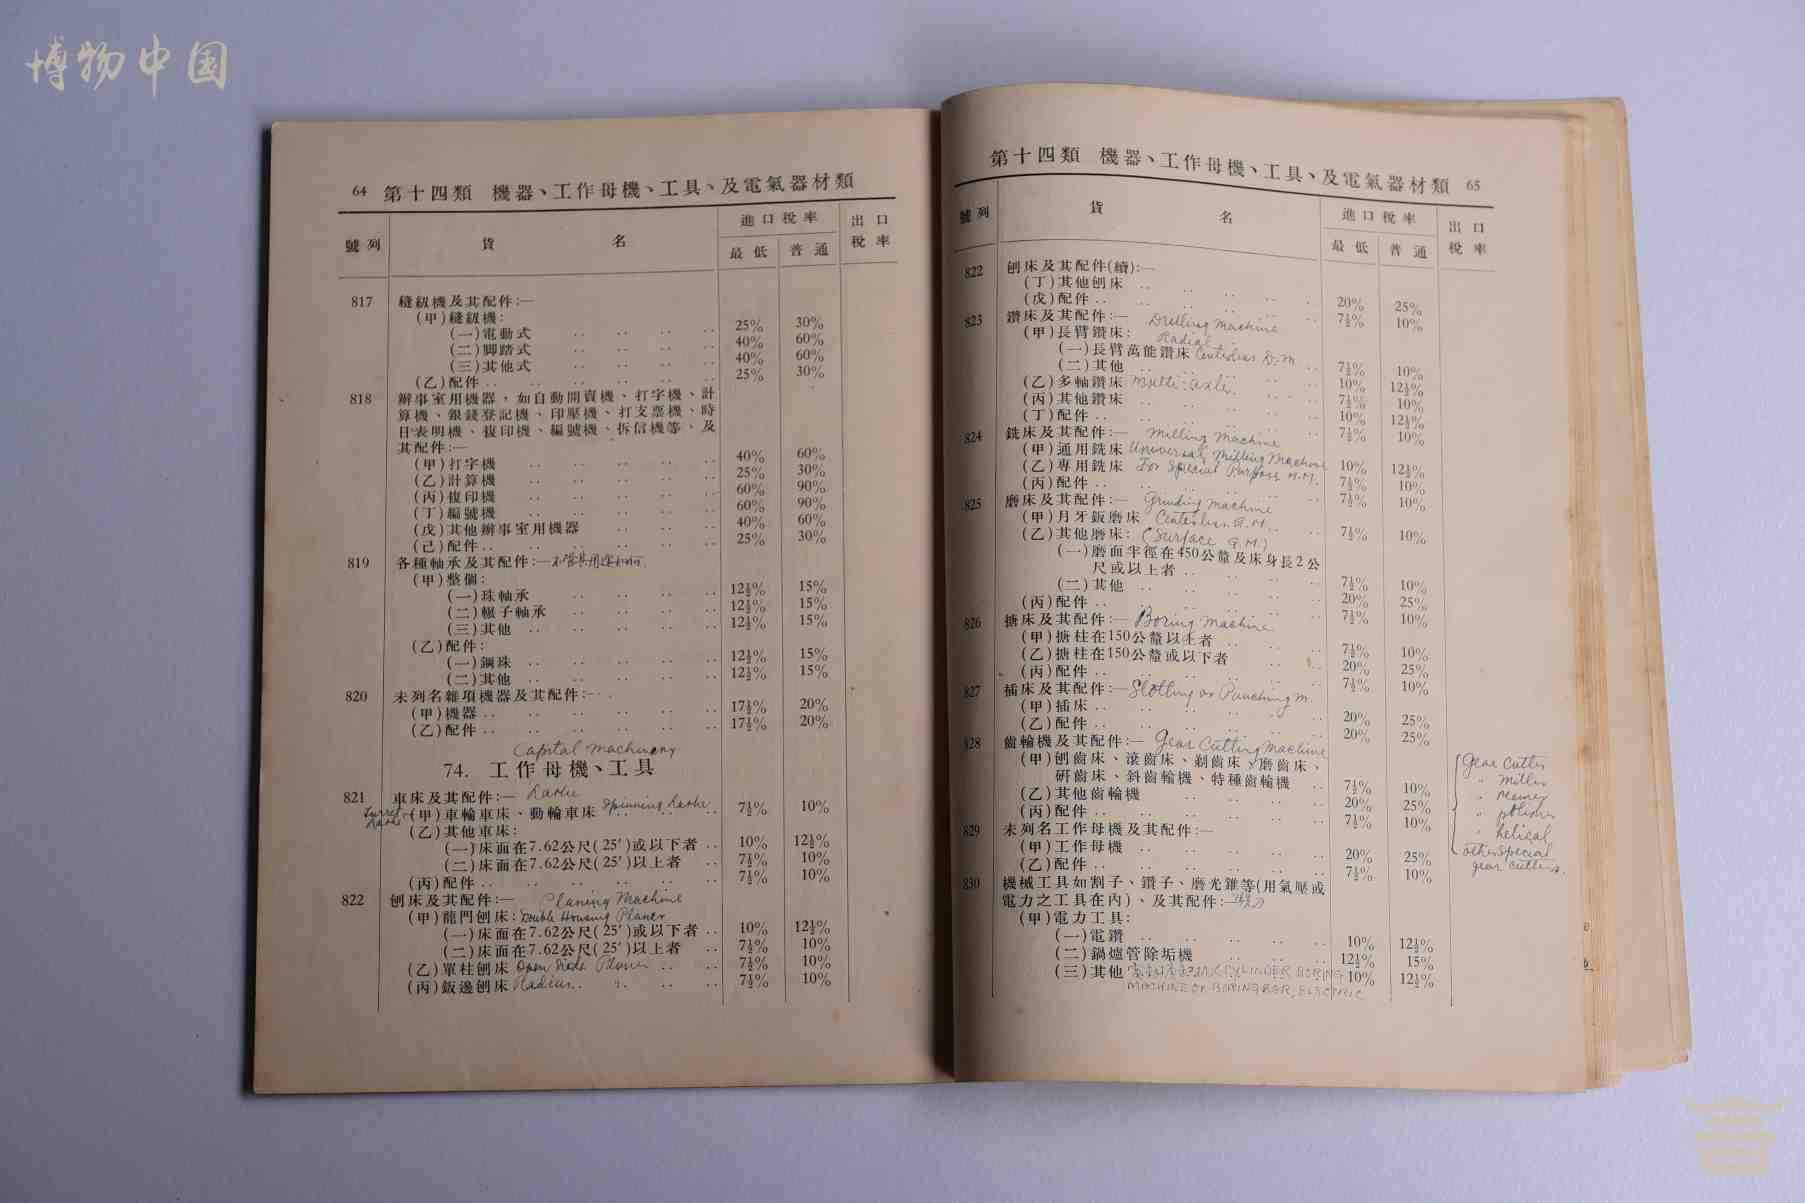 博物中国
64 第十四類 機器、工作母機、工具、及電氣器材類
號列 貨名 進口稅率 出口稅率
最低 普通
817 縫紉機及其配件:—
(甲)縫紉機:
(一)電動式 25% 30%
(二)腳踏式 40% 60%
(三)其他式 40% 60%
(乙)配件 25% 30%
818 辦事室用機器,如自動開賣機、打字機、計
算機、銀錢登記機、印壓機、打支票機、時
日表明機、複印機、編號機、拆信機等、及
其配件:—
(甲)打字機 40% 60%
(乙)計算機 25% 30%
(丙)複印機 60% 90%
(丁)編號機 60% 90%
(戊)其他辦事室用機器 40% 60%
(己)配件 25% 30%
819 各種軸承及其配件:—
(甲)整個:
(一)珠軸承 12½% 15%
(二)輥子軸承 12½% 15%
(三)其他 12½% 15%
(乙)配件:
(一)鋼珠 12½% 15%
(二)其他 12½% 15%
820 未列名雜項機器及其配件:—
(甲)機器 17½% 20%
(乙)配件 17½% 20%
Capital Machinery
74. 工作母機、工具
821 車床及其配件:— Lathe
Turret Lathe (甲)車輪車床、動輪車床 Spinning Lathe 7½% 10%
(乙)其他車床:
(一)床面在7.62公尺(25′)或以下者 10% 12½%
(二)床面在7.62公尺(25′)以上者 7½% 10%
(丙)配件 7½% 10%
822 刨床及其配件:— Planing Machine
(甲)龍門刨床: Double Housing Planer
(一)床面在7.62公尺(25′)或以下者 10% 12½%
(二)床面在7.62公尺(25′)以上者 7½% 10%
(乙)單柱刨床 Open Side Planer 7½% 10%
(丙)鈑邊刨床 Radius 7½% 10%
第十四類 機器、工作母機、工具、及電氣器材類 65
號列 貨名 進口稅率 出口稅率
最低 普通
822 刨床及其配件(續):—
(丁)其他刨床 20% 25%
(戊)配件 7½% 10%
823 鑽床及其配件:— Drilling Machine
(甲)長臂鑽床: Radial
(一)長臂萬能鑽床 D.M 7½% 10%
(二)其他 10% 12½%
(乙)多軸鑽床 Multi-axle 7½% 10%
(丙)其他鑽床 10% 12½%
(丁)配件 7½% 10%
824 銑床及其配件:— Milling Machine
(甲)通用銑床 Universal Milling Machine 10% 12½%
(乙)專用銑床 For Special Purpose M.M. 7½% 10%
(丙)配件 7½% 10%
825 磨床及其配件:— Grinding Machine
(甲)月牙鈑磨床 G.M. 7½% 10%
(乙)其他磨床: (Surface G.M.)
(一)磨面半徑在450公釐及床身長2公
尺或以上者 7½% 10%
(二)其他 20% 25%
(丙)配件 7½% 10%
826 搪床及其配件:— Boring Machine
(甲)搪柱在150公釐以上者 7½% 10%
(乙)搪柱在150公釐或以下者 20% 25%
(丙)配件 7½% 10%
827 插床及其配件:— Slotting or Punching M.
(甲)插床 20% 25%
(乙)配件 20% 25%
828 齒輪機及其配件:— Gear Cutting Machine
(甲)刨齒床、滾齒床、剃齒床、磨齒床、
研齒床、斜齒輪機、特種齒輪機 7½% 10%
(乙)其他齒輪機 20% 25%
(丙)配件 7½% 10%
Gear Cutter
" Miller
"
"
" helical
other special
gear cutters.
829 未列名工作母機及其配件:—
(甲)工作母機 20% 25%
(乙)配件 7½% 10%
830 機械工具如割子、鑽子、磨光錐等(用氣壓或
電力之工具在內)、及其配件:—
(甲)電力工具:
(一)電鑽 10% 12½%
(二)鍋爐管除垢機 12½% 15%
(三)其他 CYLINDER BORING 10% 12½%
MACHINE or BORING BAR, ELECTRIC